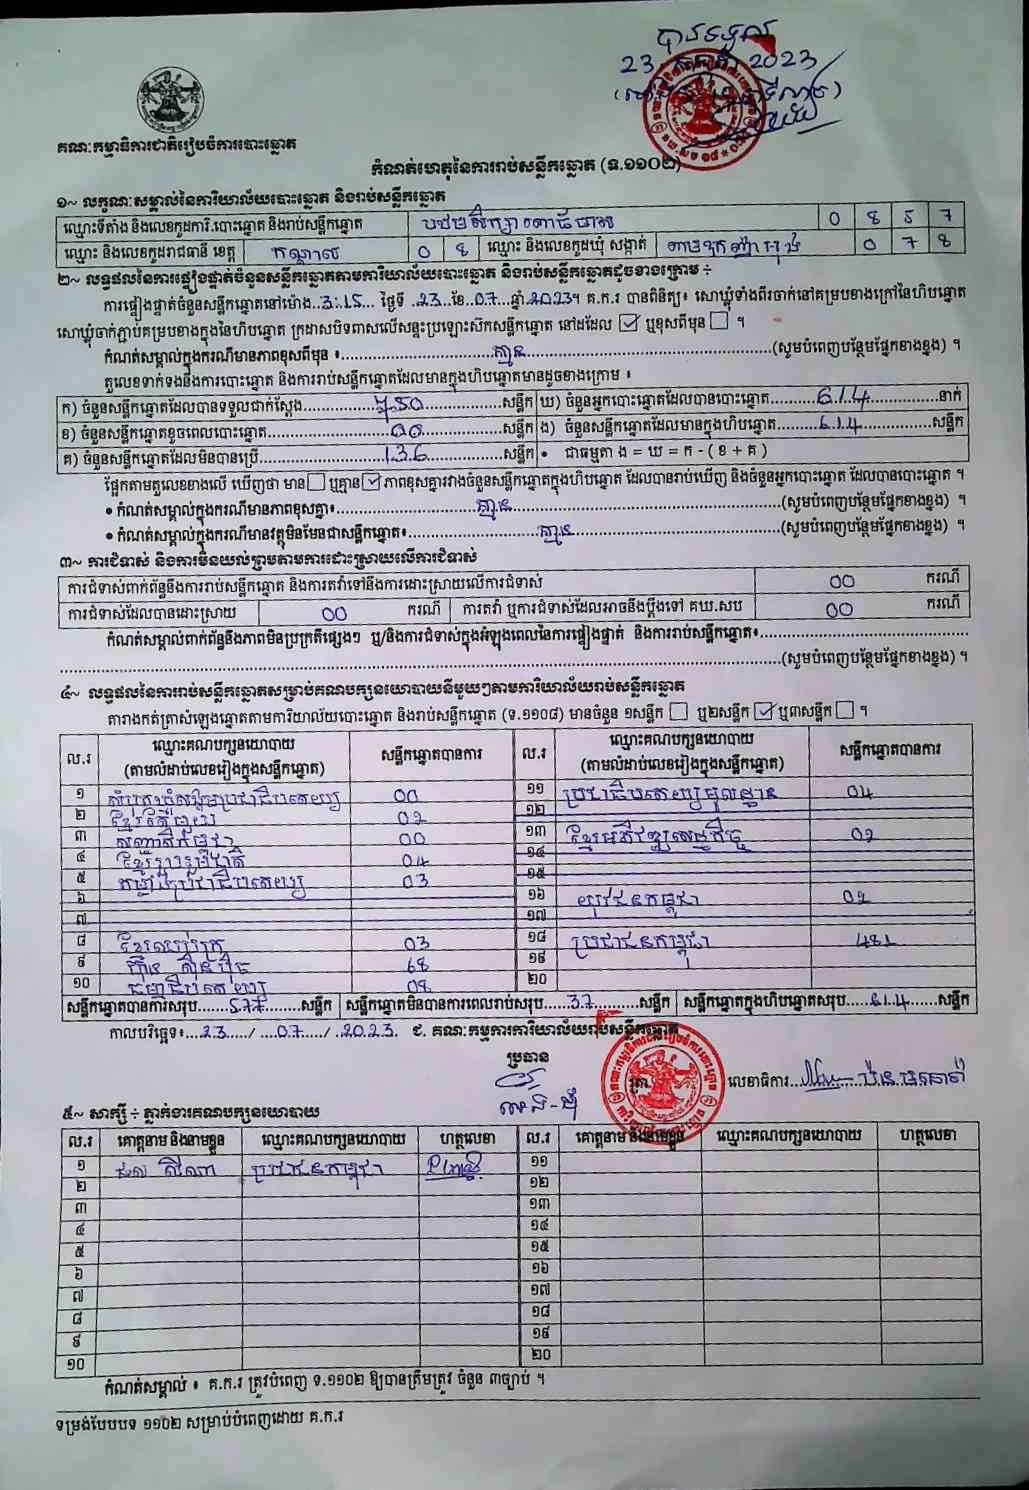 បានទទួល
23 កក្កដា 2023
គណៈកម្មាធិការជាតិរៀបចំការបោះឆ្នោត
កំណត់ហេតុនៃការរាប់សន្លឹកឆ្នោត (ទ.១១០២)
១~ លក្ខណៈសម្គាល់នៃការិយាល័យបោះឆ្នោត និងរាប់សន្លឹកឆ្នោត
ឈ្មោះទីតាំង និងលេខកូដការិ.បោះឆ្នោត និងរាប់សន្លឹកឆ្នោត បឋមសិក្សា 0 8 5 7
ឈ្មោះ និងលេខកូដរាជធានី ខេត្ត កណ្ដាល 0 8 ឈ្មោះ និងលេខកូដឃុំ សង្កាត់ 0 7 8
២~ លទ្ធផលនៃការផ្ទៀងផ្ទាត់ចំនួនសន្លឹកឆ្នោតតាមការិយាល័យបោះឆ្នោត និងរាប់សន្លឹកឆ្នោតដូចខាងក្រោម ÷
ការផ្ទៀងផ្ទាត់ចំនួនសន្លឹកឆ្នោតនៅម៉ោង..3:15... ថ្ងៃទី ..23..ខែ..07...ឆ្នាំ.2023។ គ.ក.រ បានពិនិត្យ៖ សោឃ្លុំទាំងពីរចាក់នៅគម្របខាងក្រៅនៃហិបឆ្នោត
សោឃ្លុំចាក់ភ្ជាប់គម្របខាងក្នុងនៃហិបឆ្នោត ក្រដាសបិទពាសលើសន្ទះប្រឡោះស៊ីកសន្លឹកឆ្នោត នៅដដែល ☑ ឬខុសពីមុន ☐ ។
កំណត់សម្គាល់ក្នុងករណីមានភាពខុសពីមុន ៖........គ្មាន........(សូមបំពេញបន្ថែមផ្នែកខាងខ្នង) ។
តួលេខទាក់ទងនឹងការបោះឆ្នោត និងការរាប់សន្លឹកឆ្នោតដែលមានក្នុងហិបឆ្នោតមានដូចខាងក្រោម ៖
ក) ចំនួនសន្លឹកឆ្នោតដែលបានទទួលជាក់ស្ដែង........750........សន្លឹក ឃ) ចំនួនអ្នកបោះឆ្នោតដែលបានបោះឆ្នោត........614........នាក់
ខ) ចំនួនសន្លឹកឆ្នោតខូចពេលបោះឆ្នោត........00........សន្លឹក ង) ចំនួនសន្លឹកឆ្នោតដែលមានក្នុងហិបឆ្នោត........614........សន្លឹក
គ) ចំនួនសន្លឹកឆ្នោតដែលមិនបានប្រើ........136........សន្លឹក • ជាធម្មតា ង = ឃ = ក - ( ខ + គ )
ផ្អែកតាមតួលេខខាងលើ ឃើញថា មាន☐ ឬគ្មាន☑ ភាពខុសគ្នារវាងចំនួនសន្លឹកឆ្នោតក្នុងហិបឆ្នោត ដែលបានរាប់ឃើញ និងចំនួនអ្នកបោះឆ្នោត ដែលបានបោះឆ្នោត ។
• កំណត់សម្គាល់ក្នុងករណីមានភាពខុសគ្នា៖........គ្មាន........(សូមបំពេញបន្ថែមផ្នែកខាងខ្នង) ។
• កំណត់សម្គាល់ក្នុងករណីមានវត្ថុមិនមែនជាសន្លឹកឆ្នោត៖........គ្មាន........(សូមបំពេញបន្ថែមផ្នែកខាងខ្នង) ។
៣~ ការជំទាស់ និងការមិនយល់ព្រមតាមការដោះស្រាយលើការជំទាស់
ការជំទាស់ពាក់ព័ន្ធនឹងការរាប់សន្លឹកឆ្នោត និងការតវ៉ាទៅនឹងការដោះស្រាយលើការជំទាស់ 00 ករណី
ការជំទាស់ដែលបានដោះស្រាយ 00 ករណី ការតវ៉ា ឬការជំទាស់ដែលអាចនឹងប្ដឹងទៅ គឃ.សប 00 ករណី
កំណត់សម្គាល់ពាក់ព័ន្ធនឹងភាពមិនប្រក្រតីផ្សេងៗ ឬ/និងការជំទាស់ក្នុងអំឡុងពេលនៃការផ្ទៀងផ្ទាត់ និងការរាប់សន្លឹកឆ្នោត៖........
........(សូមបំពេញបន្ថែមផ្នែកខាងខ្នង) ។
៤~ លទ្ធផលនៃការរាប់សន្លឹកឆ្នោតសម្រាប់គណបក្សនយោបាយនីមួយៗតាមការិយាល័យរាប់សន្លឹកឆ្នោត
តារាងកត់ត្រាសំឡេងឆ្នោតតាមការិយាល័យបោះឆ្នោត និងរាប់សន្លឹកឆ្នោត (ទ.១១០៨) មានចំនួន ១សន្លឹក ☐ ឬ២សន្លឹក ☑ ឬ៣សន្លឹក ☐ ។
ល.រ ឈ្មោះគណបក្សនយោបាយ (តាមលំដាប់លេខរៀងក្នុងសន្លឹកឆ្នោត) សន្លឹកឆ្នោតបានការ ល.រ ឈ្មោះគណបក្សនយោបាយ (តាមលំដាប់លេខរៀងក្នុងសន្លឹកឆ្នោត) សន្លឹកឆ្នោតបានការ
១ សំបុកឃ្មុំសង្គមប្រជាធិបតេយ្យ 00 ១១ ប្រជាធិបតេយ្យមូលដ្ឋាន 04
២ ខ្មែរតែមួយ 02 ១២
៣ សញ្ជាតិកម្ពុជា 00 ១៣ ខ្មែរអភិវឌ្ឍសេដ្ឋកិច្ច 02
៤ ខ្មែររួបរួមជាតិ 04 ១៤
៥ កម្លាំងប្រជាធិបតេយ្យ 03 ១៥
៦ ១៦ យុវជនកម្ពុជា 02
៧ ១៧
៨ ខ្មែរឈប់ក្រ 03 ១៨ ប្រជាជនកម្ពុជា 481
៩ ហ៊្វុនស៊ិនប៉ិច 68 ១៩
១០ ធម្មាធិបតេយ្យ 08 ២០
សន្លឹកឆ្នោតបានការសរុប......577......សន្លឹក សន្លឹកឆ្នោតមិនបានការពេលរាប់សរុប......37......សន្លឹក សន្លឹកឆ្នោតក្នុងហិបឆ្នោតសរុប......614......សន្លឹក
កាលបរិច្ឆេទ៖...23..../...07..../..2023. ជ. គណៈកម្មការការិយាល័យរាប់សន្លឹកឆ្នោត
ប្រធាន
លេខាធិការ
៥~ សាក្សី ÷ ភ្នាក់ងារគណបក្សនយោបាយ
ល.រ គោត្តនាម និងនាមខ្លួន ឈ្មោះគណបក្សនយោបាយ ហត្ថលេខា ល.រ គោត្តនាម និងនាមខ្លួន ឈ្មោះគណបក្សនយោបាយ ហត្ថលេខា
១ ប្រជាជនកម្ពុជា ១១
២ ១២
៣ ១៣
៤ ១៤
៥ ១៥
៦ ១៦
៧ ១៧
៨ ១៨
៩ ១៩
១០ ២០
កំណត់សម្គាល់ ៖ គ.ក.រ ត្រូវបំពេញ ទ.១១០២ ឱ្យបានត្រឹមត្រូវ ចំនួន ៣ច្បាប់ ។
ទម្រង់បែបបទ ១១០២ សម្រាប់បំពេញដោយ គ.ក.រ